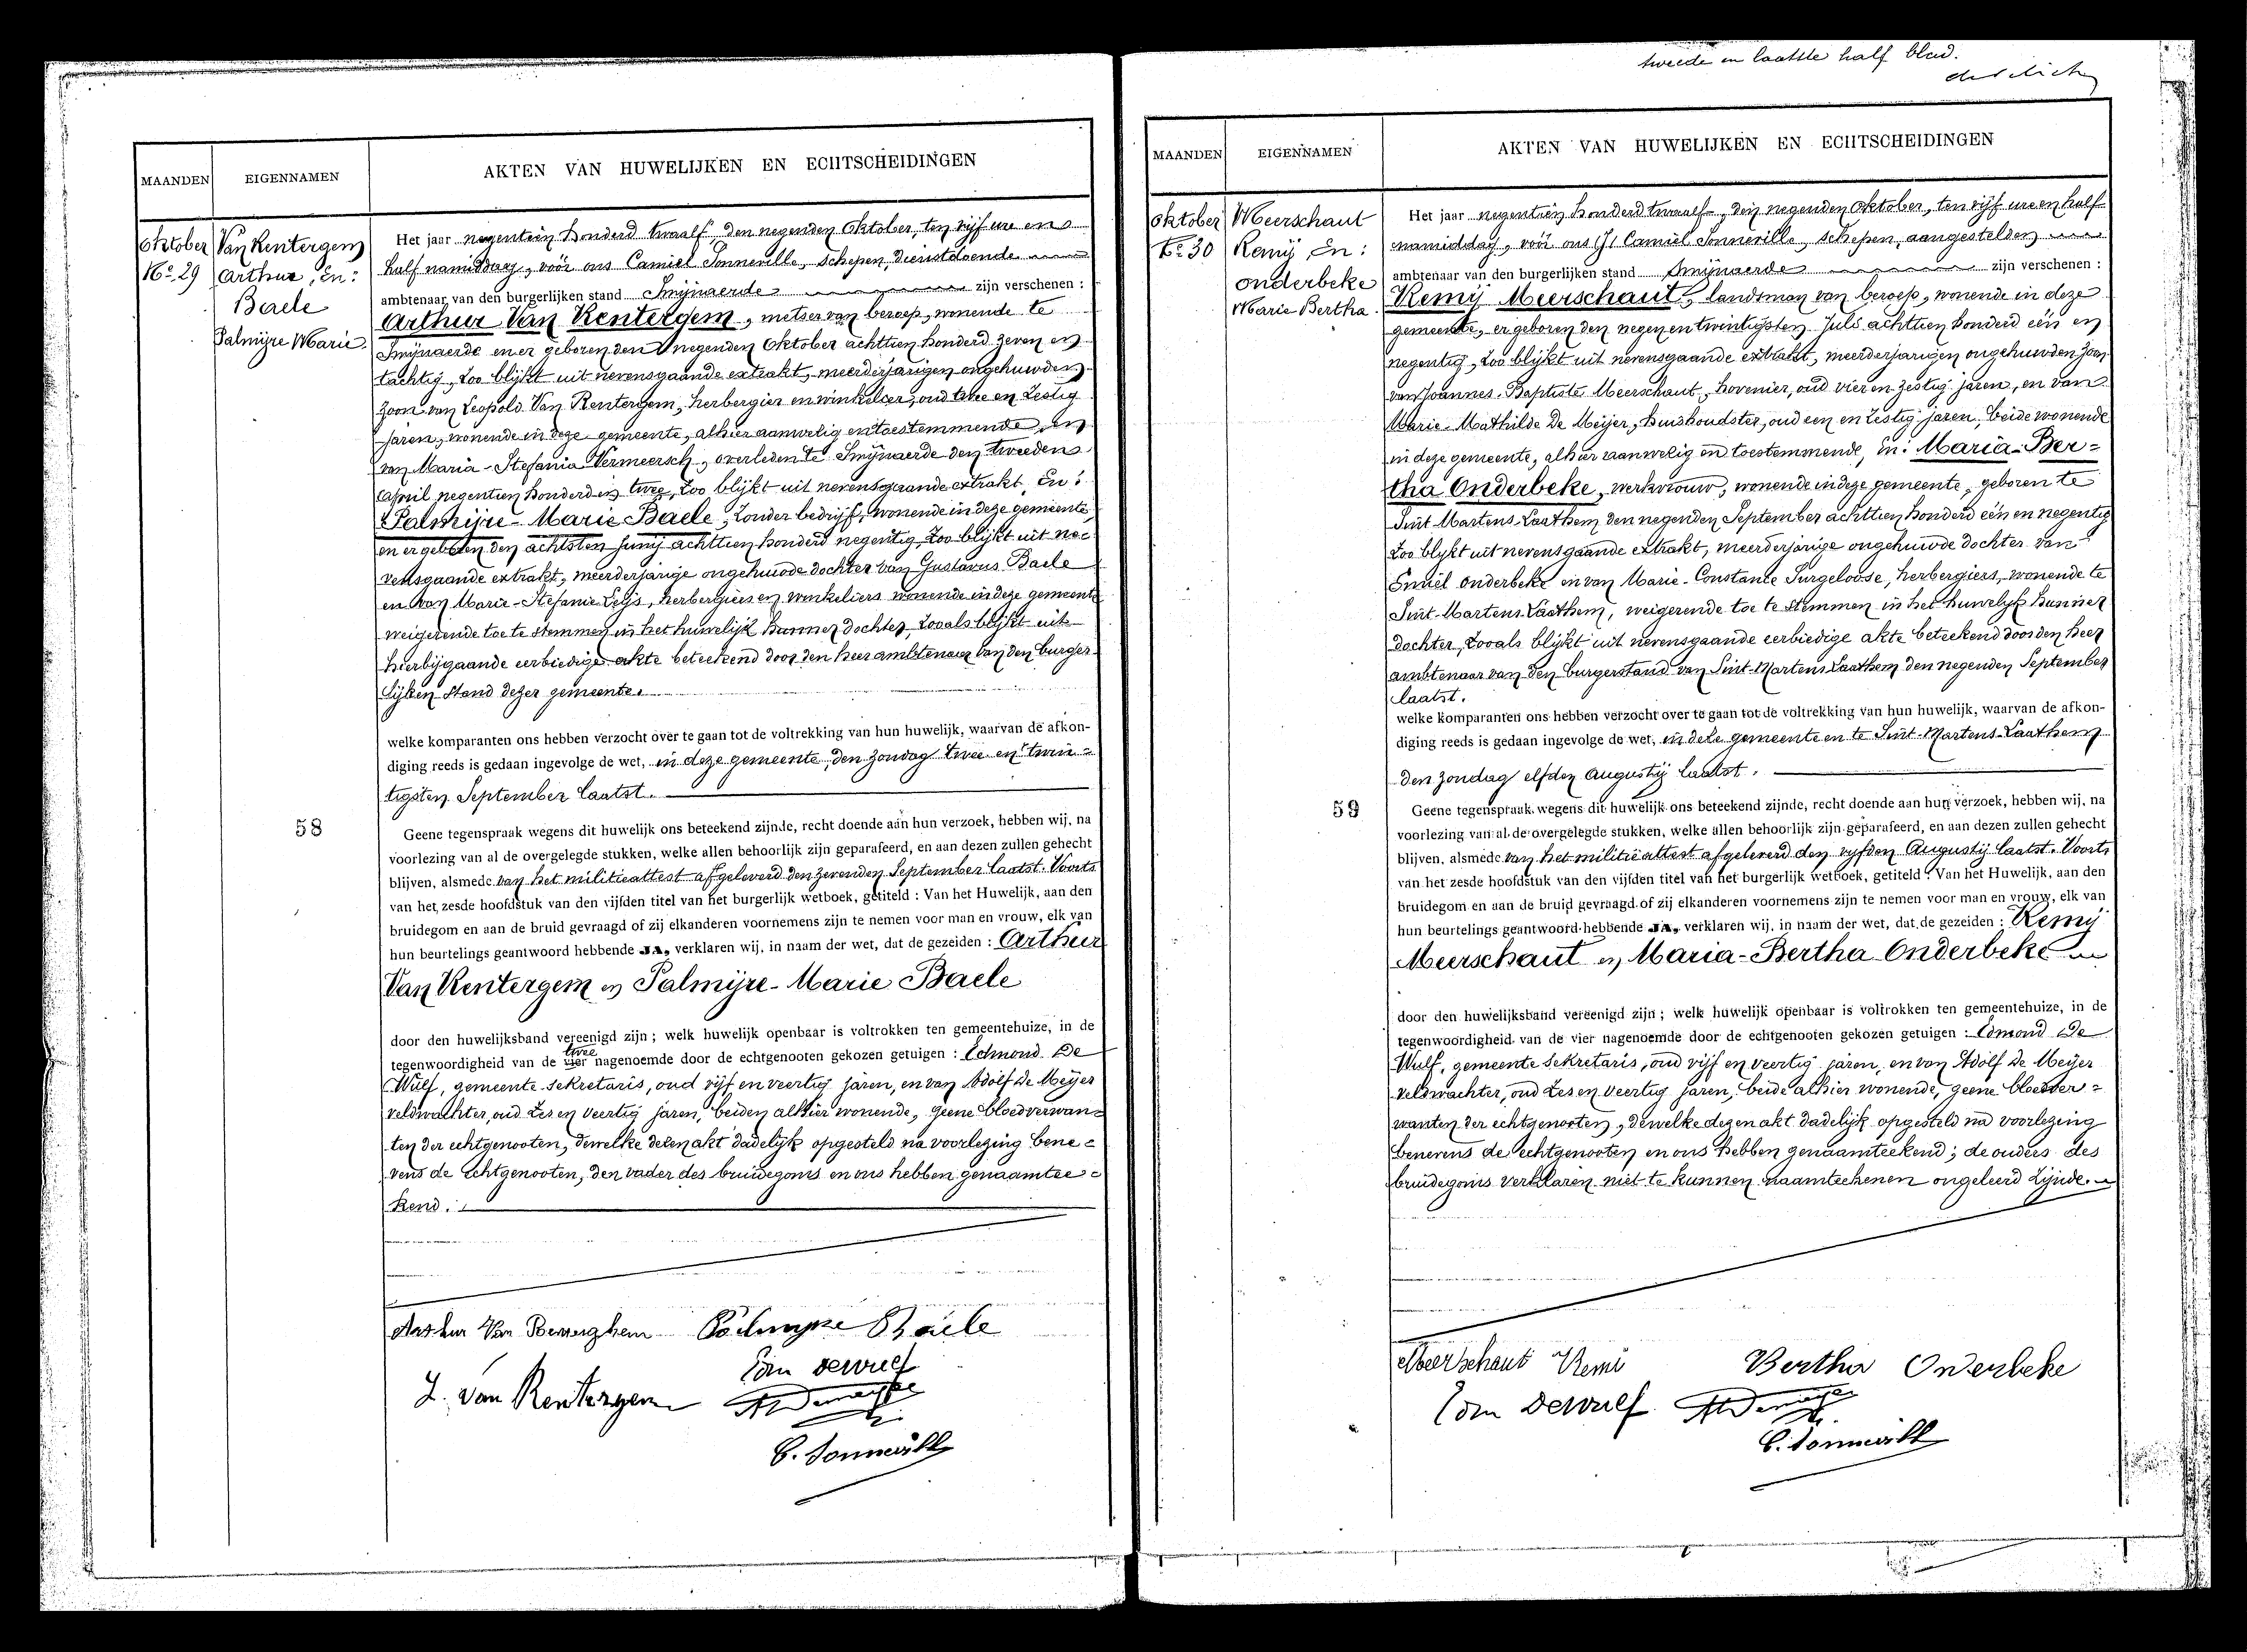 tweede en laatste half blad.
MAANDEN
EIGENNAMEN
AKTEN VAN HUWELIJKEN EN ECHTSCHEIDINGEN
Oktober
No 29
Van Rentergem
Arthur, En:
Baele
Palmÿre Marie.
Het jaar negentien honderd twaalf, den negenden Oktober, ten vijf ure en
half namiddag, vóór ons Camiel Sonneville, Schepen, dienstdoende
ambtenaar van den burgerlijken stand Smijnaerde zijn verschenen :
Arthur Van Rentergem, metser van beroep, wonende te
Smijnaerde en er geboren den negenden Oktober achttien honderd zeven en
tachtig, zoo blijkt uit nevensgaande extrakt, meerderjarigen ongehuwden
zoon van Leopold Van Rentergem, herbergier en winkelier, oud twee en zestig
jaren, wonende in deze gemeente, alhier aanwezig en toestemmende, en
van Maria-Stefania Vermeersch, overleden te Smijnaerde den tweeden
April negentien honderd en twee, zoo blijkt uit nevensgaande extrakt, En:
Palmijre-Marie Baele, zonder bedrijf, wonende in deze gemeente,
en er geboren den achtsten Junij achttien honderd negentig, zoo blijkt uit ne-
vensgaande extrakt, meerderjarige ongehuwde dochter van Gustavus Baele
en van Marie-Stefanie Leijs, herbergiers en winkeliers wonende in deze gemeente
weigerende toe te stemmen in het huwelijk hunner dochter, zooals blijkt uit
hierbijgaande eerbiedige akte beteekend door den heer ambtenaar van den burger-
lijken stand dezer gemeente.
welke komparanten ons hebben verzocht over te gaan tot de voltrekking van hun huwelijk, waarvan de afkon-
diging reeds is gedaan ingevolge de wet, in deze gemeente, den zondag twee en twin-
tigsten September laatst.
58
Geene tegenspraak wegens dit huwelijk ons beteekend zijnde, recht doende aan hun verzoek, hebben wij, na
voorlezing van al de overgelegde stukken, welke allen behoorlijk zijn geparafeerd, en aan dezen zullen gehecht
blijven, alsmede van het militieattest afgeleverd den zevenden September laatst. Voorts
van het zesde hoofdstuk van den vijfden titel van het burgerlijk wetboek, getiteld : Van het Huwelijk, aan den
bruidegom en aan de bruid gevraagd of zij elkanderen voornemens zijn te nemen voor man en vrouw, elk van
hun beurtelings geantwoord hebbende JA, verklaren wij, in naam der wet, dat de gezeiden : Arthur
Van Rentergem en Palmijre-Marie Baele
door den huwelijksband vereenigd zijn ; welk huwelijk openbaar is voltrokken ten gemeentehuize, in de
twee
tegenwoordigheid van de vier nagenoemde door de echtgenooten gekozen getuigen : Edmond De
Wulf, gemeente sekretaris, oud vijf en veertig jaren, en van Adolf De Meijer
veldwachter, oud zes en veertig jaren, beiden alhier wonende, geene bloedverwan-
ten der echtgenooten, dewelke dezen akt dadelijk opgesteld na voorlezing bene-
vens de echtgenooten, den vader des bruidegoms en ons hebben genaamtee-
kend.
Arthur Van Renterghem Palmyre Baele
L. Van Rentergem Edm Dewulf
Ad Demeyer
C. Sonneville
MAANDEN
EIGENNAMEN
AKTEN VAN HUWELIJKEN EN ECHTSCHEIDINGEN
Oktober
No 30
Meerschaut
Remij, En:
Onderbeke
Marie Bertha.
Het jaar negentien honderd twaalf, den negenden Oktober, ten vijf ure en half
namiddag, vóór ons Camiel Sonneville, schepen, aangestelden
ambtenaar van den burgerlijken stand Smijnaerde zijn verschenen :
Remij Meerschaut, landsman van beroep, wonende in deze
gemeente, er geboren den negen en twintigsten Juli achttien honderd één en
negentig, zoo blijkt uit nevensgaande extrakt, meerderjarigen ongehuwden zoon
van Joannes-Baptiste Meerschaut, hovenier, oud vier en zestig jaren, en van
Marie-Mathilde De Meijer, huishoudster, oud een en zestig jaren, beide wonende
in deze gemeente, alhier aanwezig en toestemmende, En: Maria-Ber-
tha Onderbeke, werkvrouw, wonende in deze gemeente, geboren te
Sint Martens-Laathem den negenden September achttien honderd één en negentig
zoo blykt uit nevensgaande extrakt, meerderjarige ongehuwde dochter van
Emiel Onderbeke en van Marie-Constance Surgeloose, herbergiers, wonende te
Sint-Martens-Laathem, weigerende toe te stemmen in het huwelyk hunner
dochter, zooals blijkt uit nevensgaande eerbiedige akte beteekend door den heer
ambtenaar van den burgerstand van Sint-Martens-Laathem den negenden September
laatst.
welke komparanten ons hebben verzocht over te gaan tot de voltrekking van hun huwelijk, waarvan de afkon-
diging reeds is gedaan ingevolge de wet, in deze gemeente en te Sint-Martens-Laathem
den zondag elfden Augustij laatst.
59
Geene tegenspraak wegens dit huwelijk ons beteekend zijnde, recht doende aan hun verzoek, hebben wij, na
voorlezing van al de overgelegde stukken, welke allen behoorlijk zijn geparafeerd, en aan dezen zullen gehecht
blijven, alsmede van het militieattest afgeleverd den vyfden Augustij laatst. Voorts
van het zesde hoofdstuk van den vijfden titel van het burgerlijk wetboek, getiteld : Van het Huwelijk, aan den
bruidegom en aan de bruid gevraagd of zij elkanderen voornemens zijn te nemen voor man en vrouw, elk van
hun beurtelings geantwoord hebbende JA, verklaren wij, in naam der wet, dat de gezeiden : Remij
Meerschaut en Maria-Bertha Onderbeke
door den huwelijksband vereenigd zijn ; welk huwelijk openbaar is voltrokken ten gemeentehuize, in de
tegenwoordigheid van de vier nagenoemde door de echtgenooten gekozen getuigen : Edmond De
Wulf, gemeente sekretaris, oud vijf en veertig jaren, en van Adolf De Meijer
veldwachter, oud zes en veertig jaren, beide alhier wonende, geene bloedver-
wanten der echtgenooten, dewelke dezen akt dadelijk opgesteld na voorlezing
benevens de echtgenooten en ons hebben genaamteekend; de ouders des
bruidegoms verklaren niet te kunnen naamteekenen ongeleerd zijnde.
Meerschaut Remi Bertha Onderbeke
Edm Dewulf Ad Demeyer
C. Sonneville